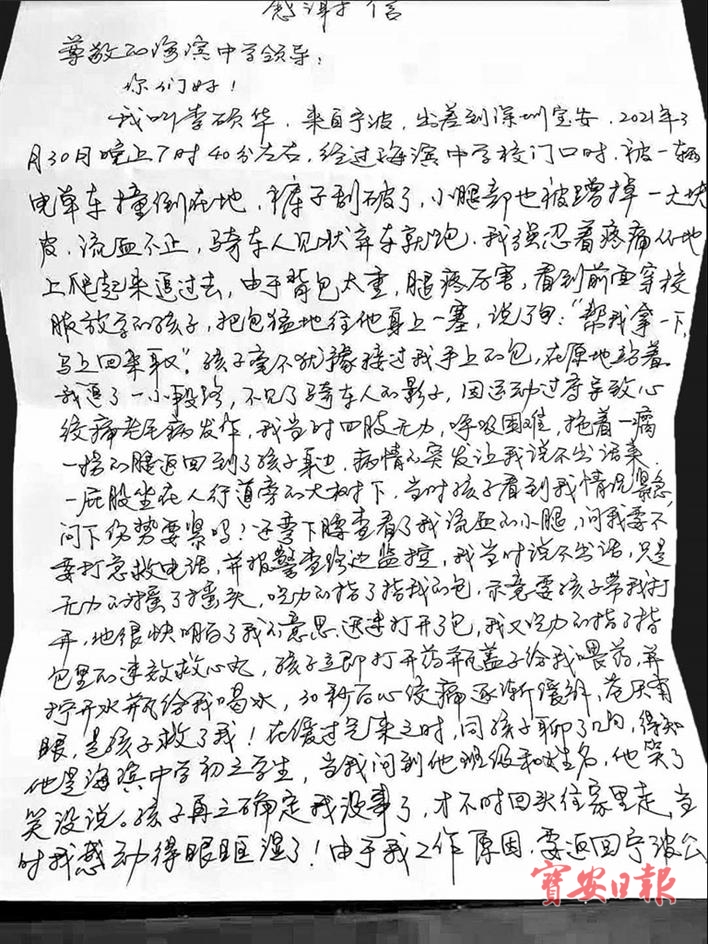 感谢信
尊敬的海滨中学领导：
你们好！
我叫李硕华，来自宁波，出差到深圳宝安，2021年3
月30日晚上7时40分左右，经过海滨中学校门口时，被一辆
电单车撞倒在地，裤子刮破了，小腿部也被蹭掉一大块
皮，流血不止，骑车人见状弃车就跑，我强忍着疼痛从地
上爬起来追过去，由于背包太重，腿疼厉害，看到前面穿校
服放学的孩子，把包猛地往他身上一塞，说了句："帮我拿一下，
马上回来取"。孩子毫不犹豫接过我手上的包，在原地站着，
我追了一小段路，不见了骑车人的影子，因运动过度导致心
绞痛老毛病发作，我当时四肢无力，呼吸困难，拖着一瘸
一拐的腿返回到了孩子身边，病情的突发让我说不出话来，
一屁股坐在人行道旁的大树下，当时孩子看到我情况紧急，
问下伤势要紧吗！还弯下腰查看了我流血的小腿，问我要不
要打急救电话，并报警查给边监控，我当时说不出话，只是
无力的摇了摇头，吃力的指了指我的包，示意要孩子帮我打
开，他很快明白了我的意思，迅速打开了包，我又吃力的指了指
包里的速效救心丸，孩子立即打开药瓶盖子给我喂药，并
拧开水瓶给我喝水，30秒后心绞痛逐渐缓解，苍天有
眼，是孩子救了我！在缓过气来之时，同孩子聊了几句，得知
他是海滨中学初三学生，当我问到他班级和姓名，他笑了
笑没说。孩子再三确定我没事了，才不时回头往家里走，当
时我感动得眼眶湿了！由于我工作原因，要返回宁波公
寶安日報